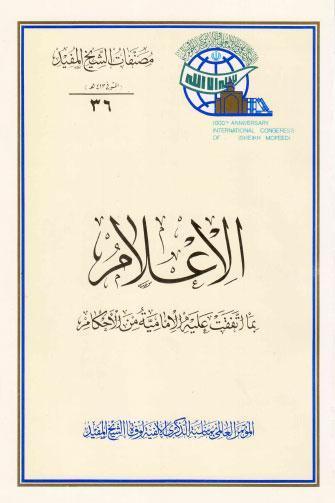 مصنفات الشيخ المفيد
(المتوفى ٤١٣ هـ)
٣٦
1000TH ANNIVERSARY
INTERNATIONAL CONGRESS
OF SHEIKH MOFEED
الإعلام
بما اتفقت عليه الإمامية من الأحكام
المؤتمر العالمي بمناسبة الذكرى الألفية لوفاة الشيخ المفيد